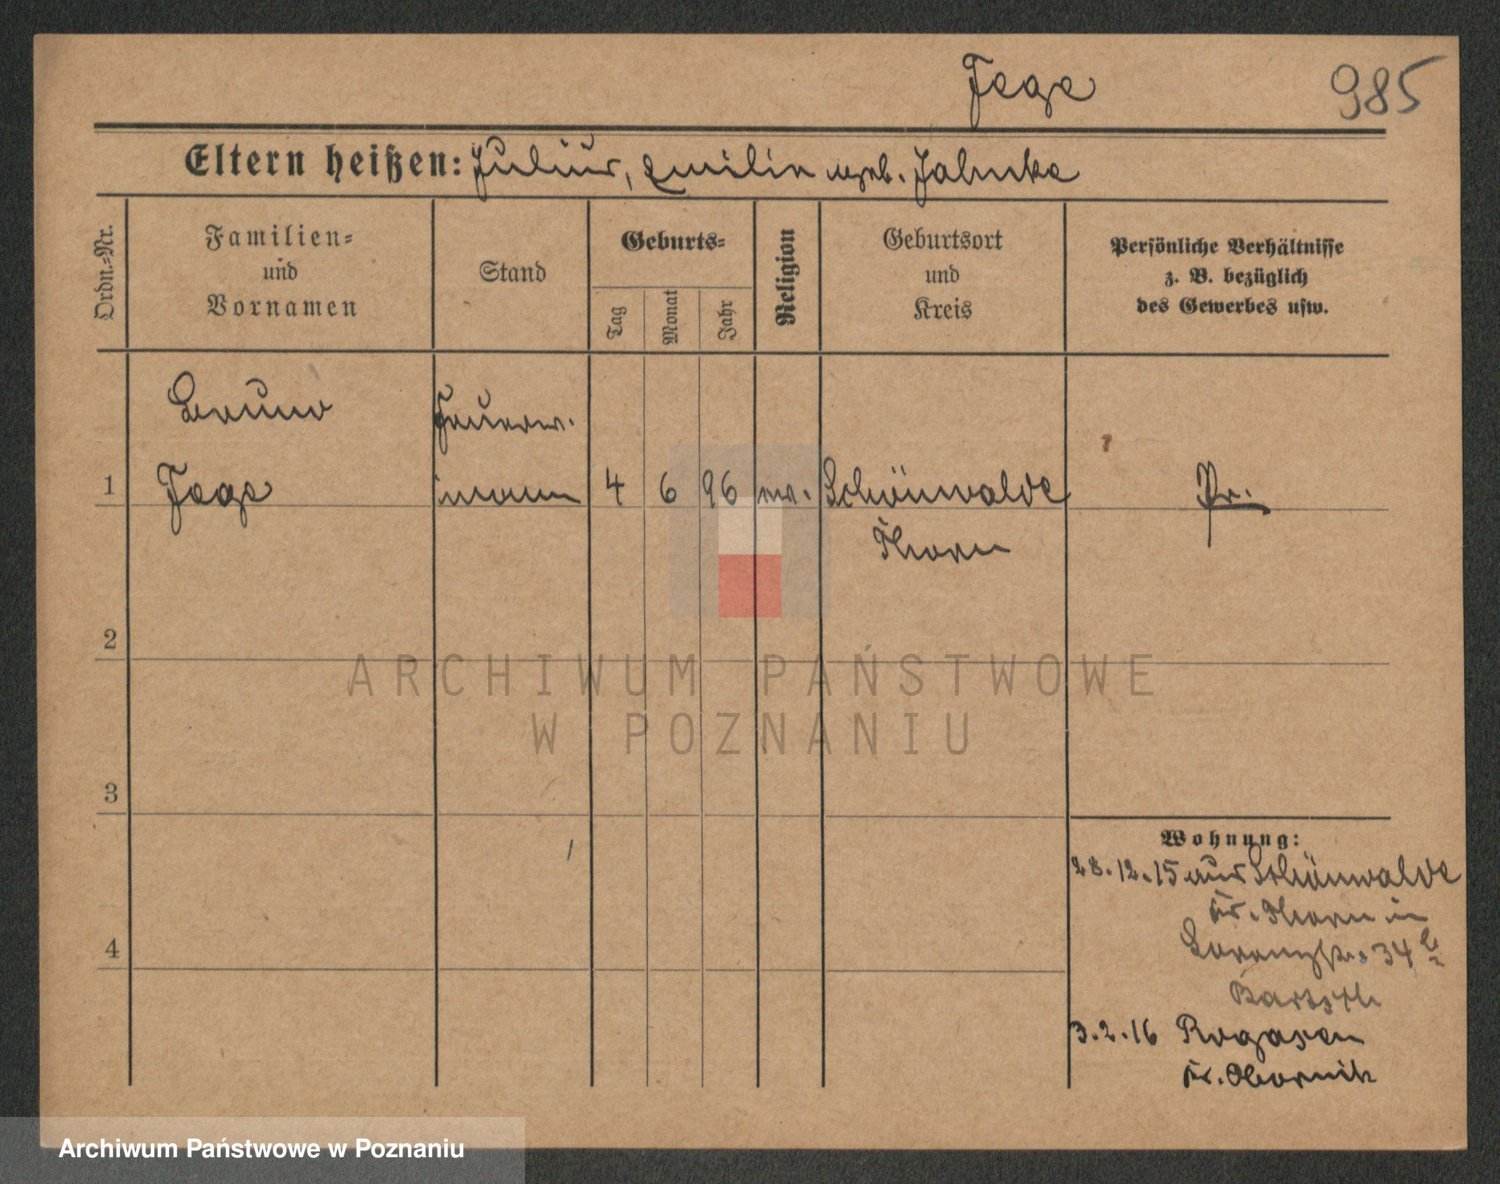 Jage
985
Eltern heißen: Julius, Emilie geb. Jahnke
Ordn.-Nr.
Familien-
und
Vornamen
Stand
Geburts-
Tag
Monat
Jahr
Religion
Geburtsort
und
Kreis
Persönliche Verhältnisse
z. B. bezüglich
des Gewerbes usw.
Bruno
Feuerw.
1
Jage
mann
4
6
96
ev.
Schönwalde
Pr.
Thorn
2
ARCHIWUM PAŃSTWOWE
W POZNANIU
3
Wohnung:
28.12.15 aus Schönwalde
Kr. Thorn in
34
4
Bartsch
3.2.16 Rogasen
Kr. Obornik
Archiwum Państwowe w Poznaniu